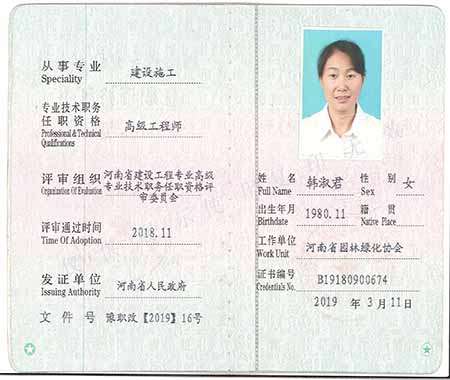 从事专业
Speciality
建设施工
专业技术职务
任职资格
Professional & Technical
Qualifications
高级工程师
评审组织
Organization Of Evaluation
河南省建设工程专业高级
专业技术职务任职资格评
审委员会
评审通过时间
Time Of Adoption
2018.11
发证单位
Issuing Authority
河南省人民政府
文件号 豫职改【2019】16号
姓名 韩淑君 性别 女
Full Name Sex
出生年月 1980.11 籍贯
Birthdate Native Place
工作单位 河南省园林绿化协会
Work Unit
证书编号 B19180900674
Credentials No.
2019 年 3 月 11 日